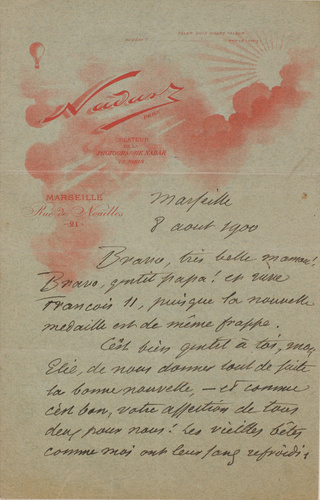 Nadar
FONDATEUR
DE LA
PHOTOGRAPHIE NADAR
DE PARIS
MARSEILLE
Rue de Noailles
-21-
Marseille
8 août 1900
Bravo, très belle maman!
Bravo, gentil papa! et vive
François II, puisque la nouvelle
médaille est de même frappe.
C'est bien gentil à toi, mon
Elie, de nous donner tout de suite
la bonne nouvelle, — et comme
c'est bon, votre affection de tous
deux pour nous! Les vieilles bêtes
comme moi ont leur sang refroidi :